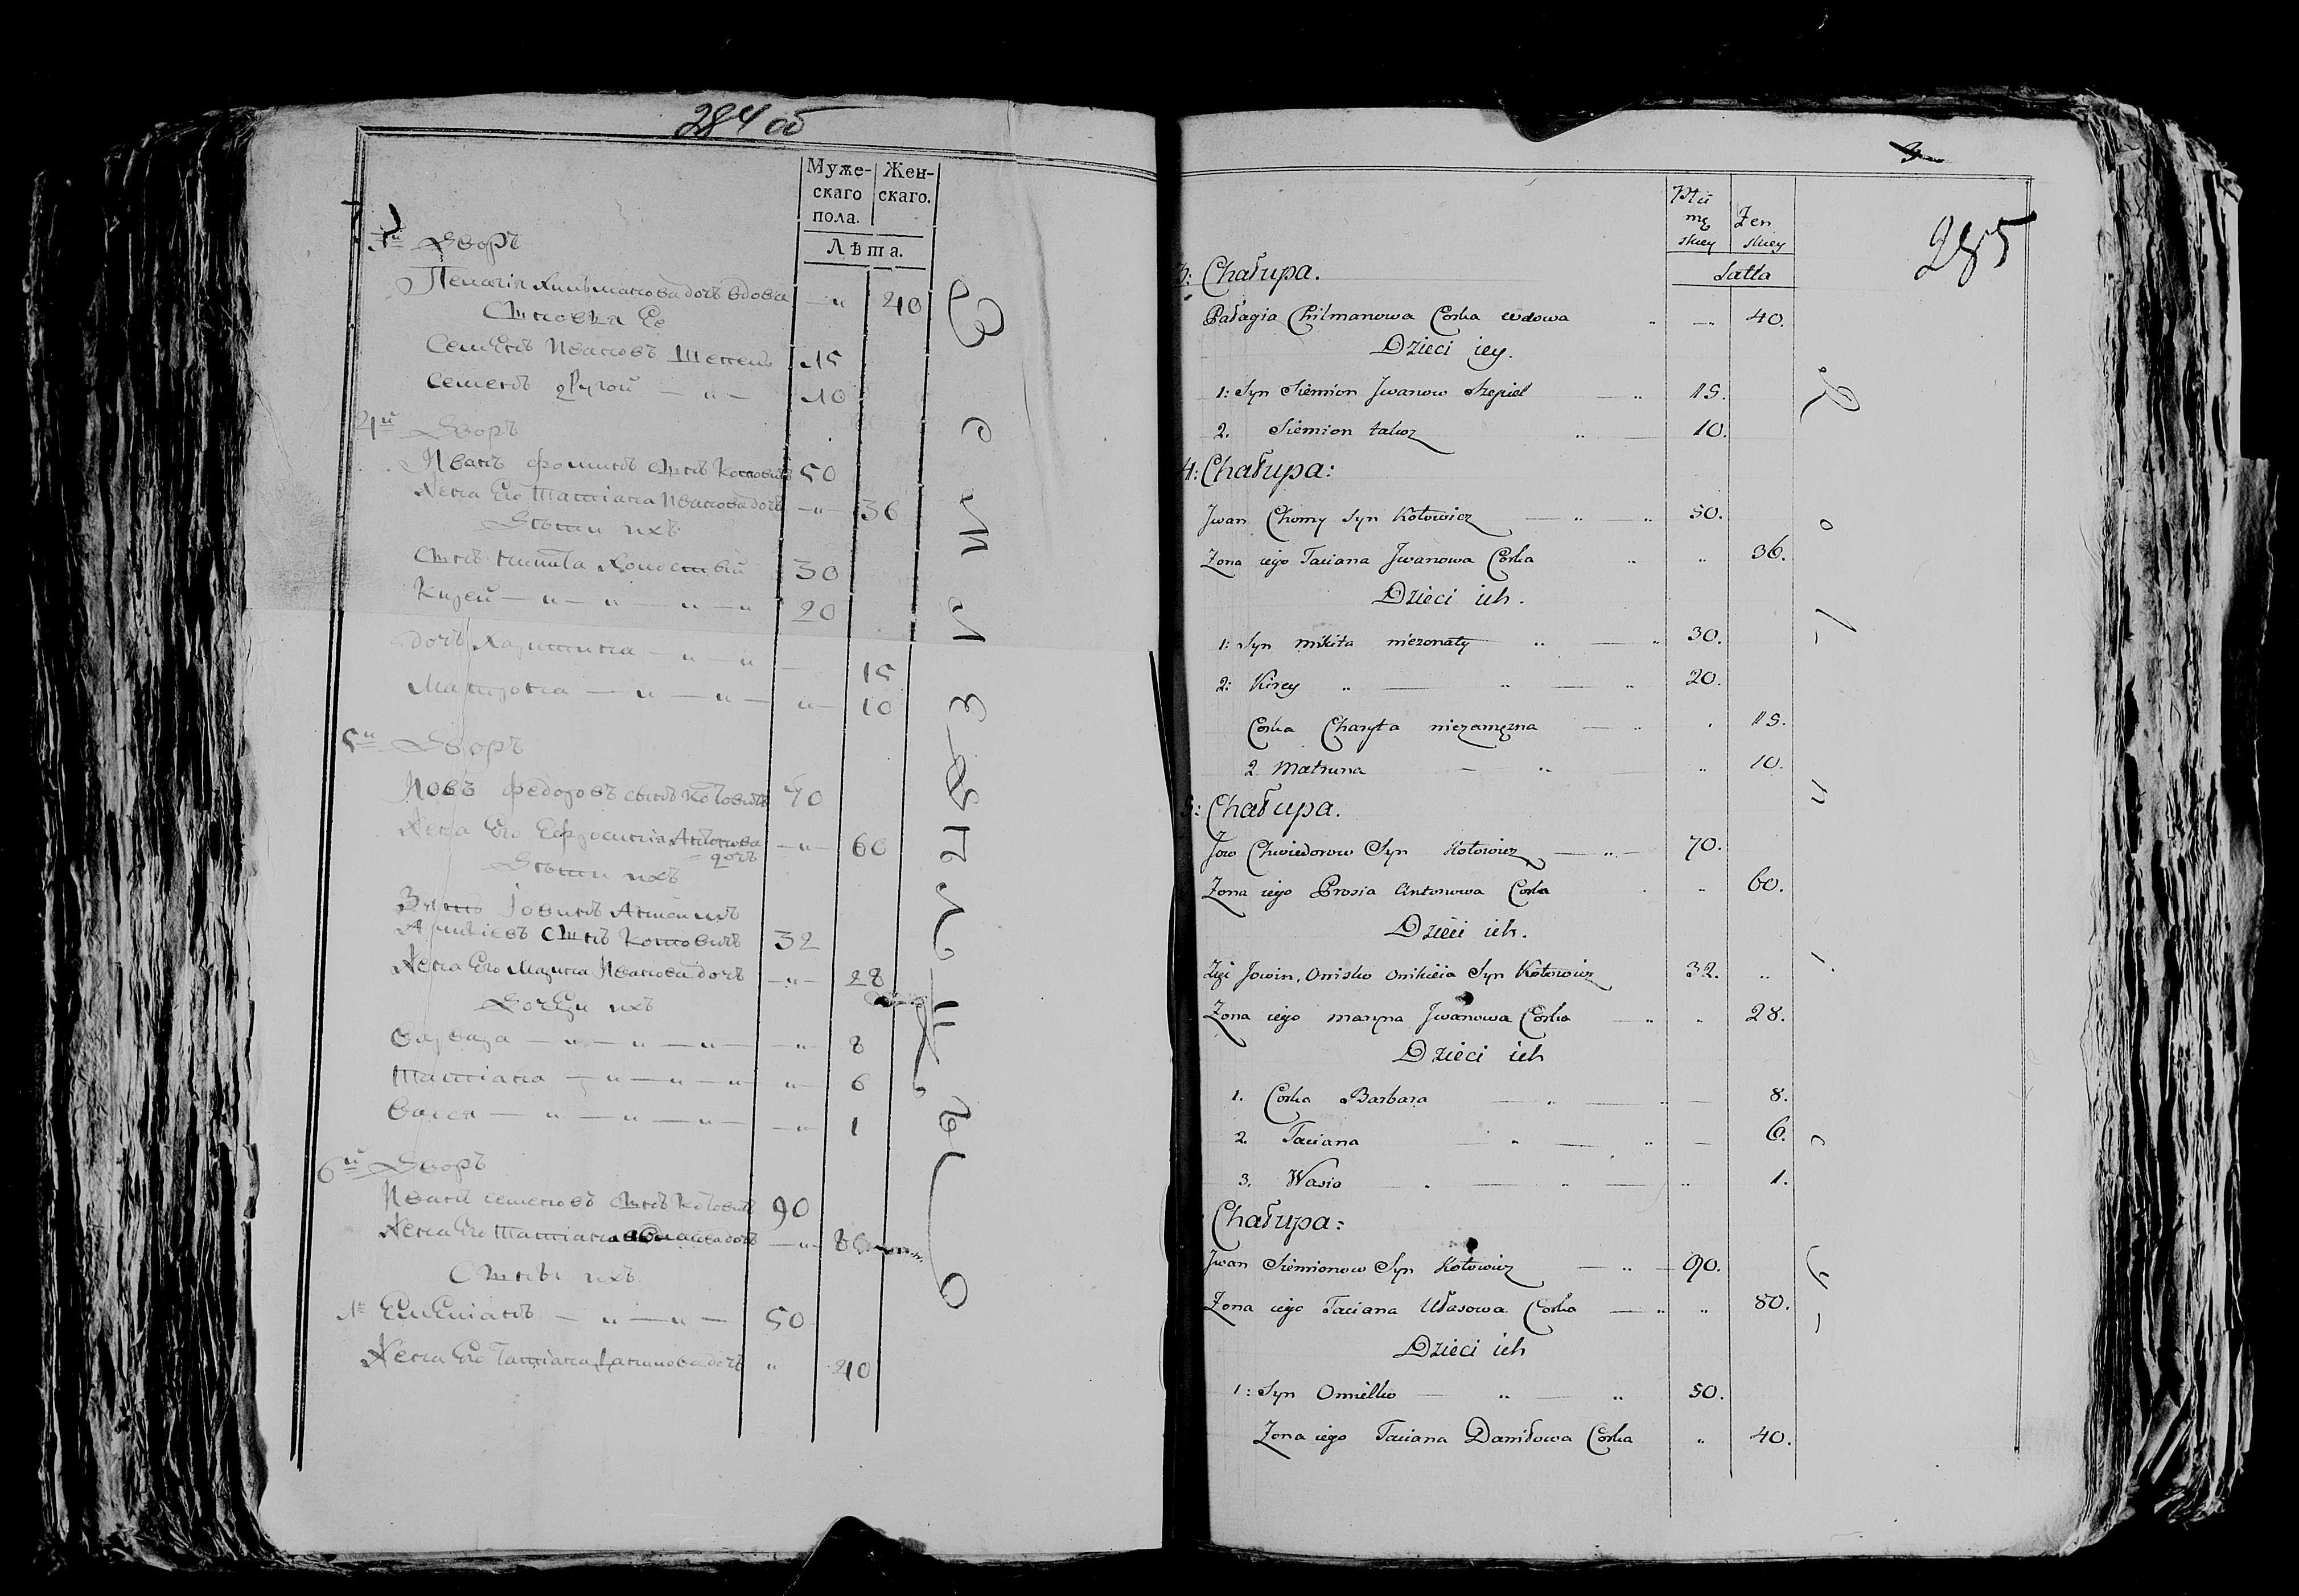 284 об
Муже-
скаго
пола.
Жен-
скаго.
Лѣта.
3й Дворъ
Пелагія Хильманова дочь вдова — " 40
Сыновья Ее
Семенъ Ивановъ Шепель 15
Семенъ другой — " — 10
4й Дворъ
Иванъ Фоминъ сынъ Котовичь 50
Жена Его Татіана Иванова дочь — " — 36
Дѣти ихъ
Сынъ Никита холостый 30
Кирей — " — " — " — " 20
дочь Харитина — " — " — 15
Матрона — " — " — " — 10
5й Дворъ
Іовъ Федоровъ сынъ Котовичь 70
Жена Его Ефросинія Антонова
дочь — " — 60
Дѣти ихъ
Зять Іовинъ
сынъ Котовичь 32
Жена Его Марина Иванова дочь — " — 28
Дочери ихъ
Варвара — " — " — " — " — 8
Татіана — " — " — " " — 6
Васся — " — " — " — — " — 1
6й Дворъ
Иванъ Семеновъ сынъ Котовичь 90
Жена Его Татіана дочь — " — 80
Сыны ихъ
1й Емеліанъ — " — " — 50
Жена Его Татіана дочь " 40
3
285
Mę
skiey
Żen
skiey
Latta
3: Chałupa.
Pałagia Chilmanowa Corka wdowa " — " — 40.
Dzieci iey.
1: Syn Siemion Jwanow Szepiel — " 15.
2. Siemion takoz " — 10.
4: Chałupa:
Jwan Chomy Syn Kotowicz — " — " 50.
Zona iego Taciana Jwanowa Corka " " 36.
Dzieci ich.
1: Syn Mikita niezonaty " — " 30.
2: Kirey " — " — " 20.
Corka Charyta niezamęzna — " . 15.
2 Matruna — " — " 10.
5: Chałupa.
Jow Chwiedorow Syn Kotowicz — " — 70.
Zona iego Prosia Antonowa Corka . " 60.
Dzieci ich.
Zięć Jowin, Onisko Onikieia Syn Kotowicz 32. "
Zona iego Maryna Jwanowa Corka — " " 28.
Dzieci ich
1. Corka Barbara — " — " — 8.
2. Taciana — " — " — 6.
3. Wasia . — " — " 1.
Chałupa:
Jwan Siemionow Syn Kotowicz — " — 90.
Zona iego Taciana Ułasowa Corka — " " 80.
Dzieci ich
1: Syn Omielko — " — " 50.
Zona iego Taciana Daniłowa Corka " 40.